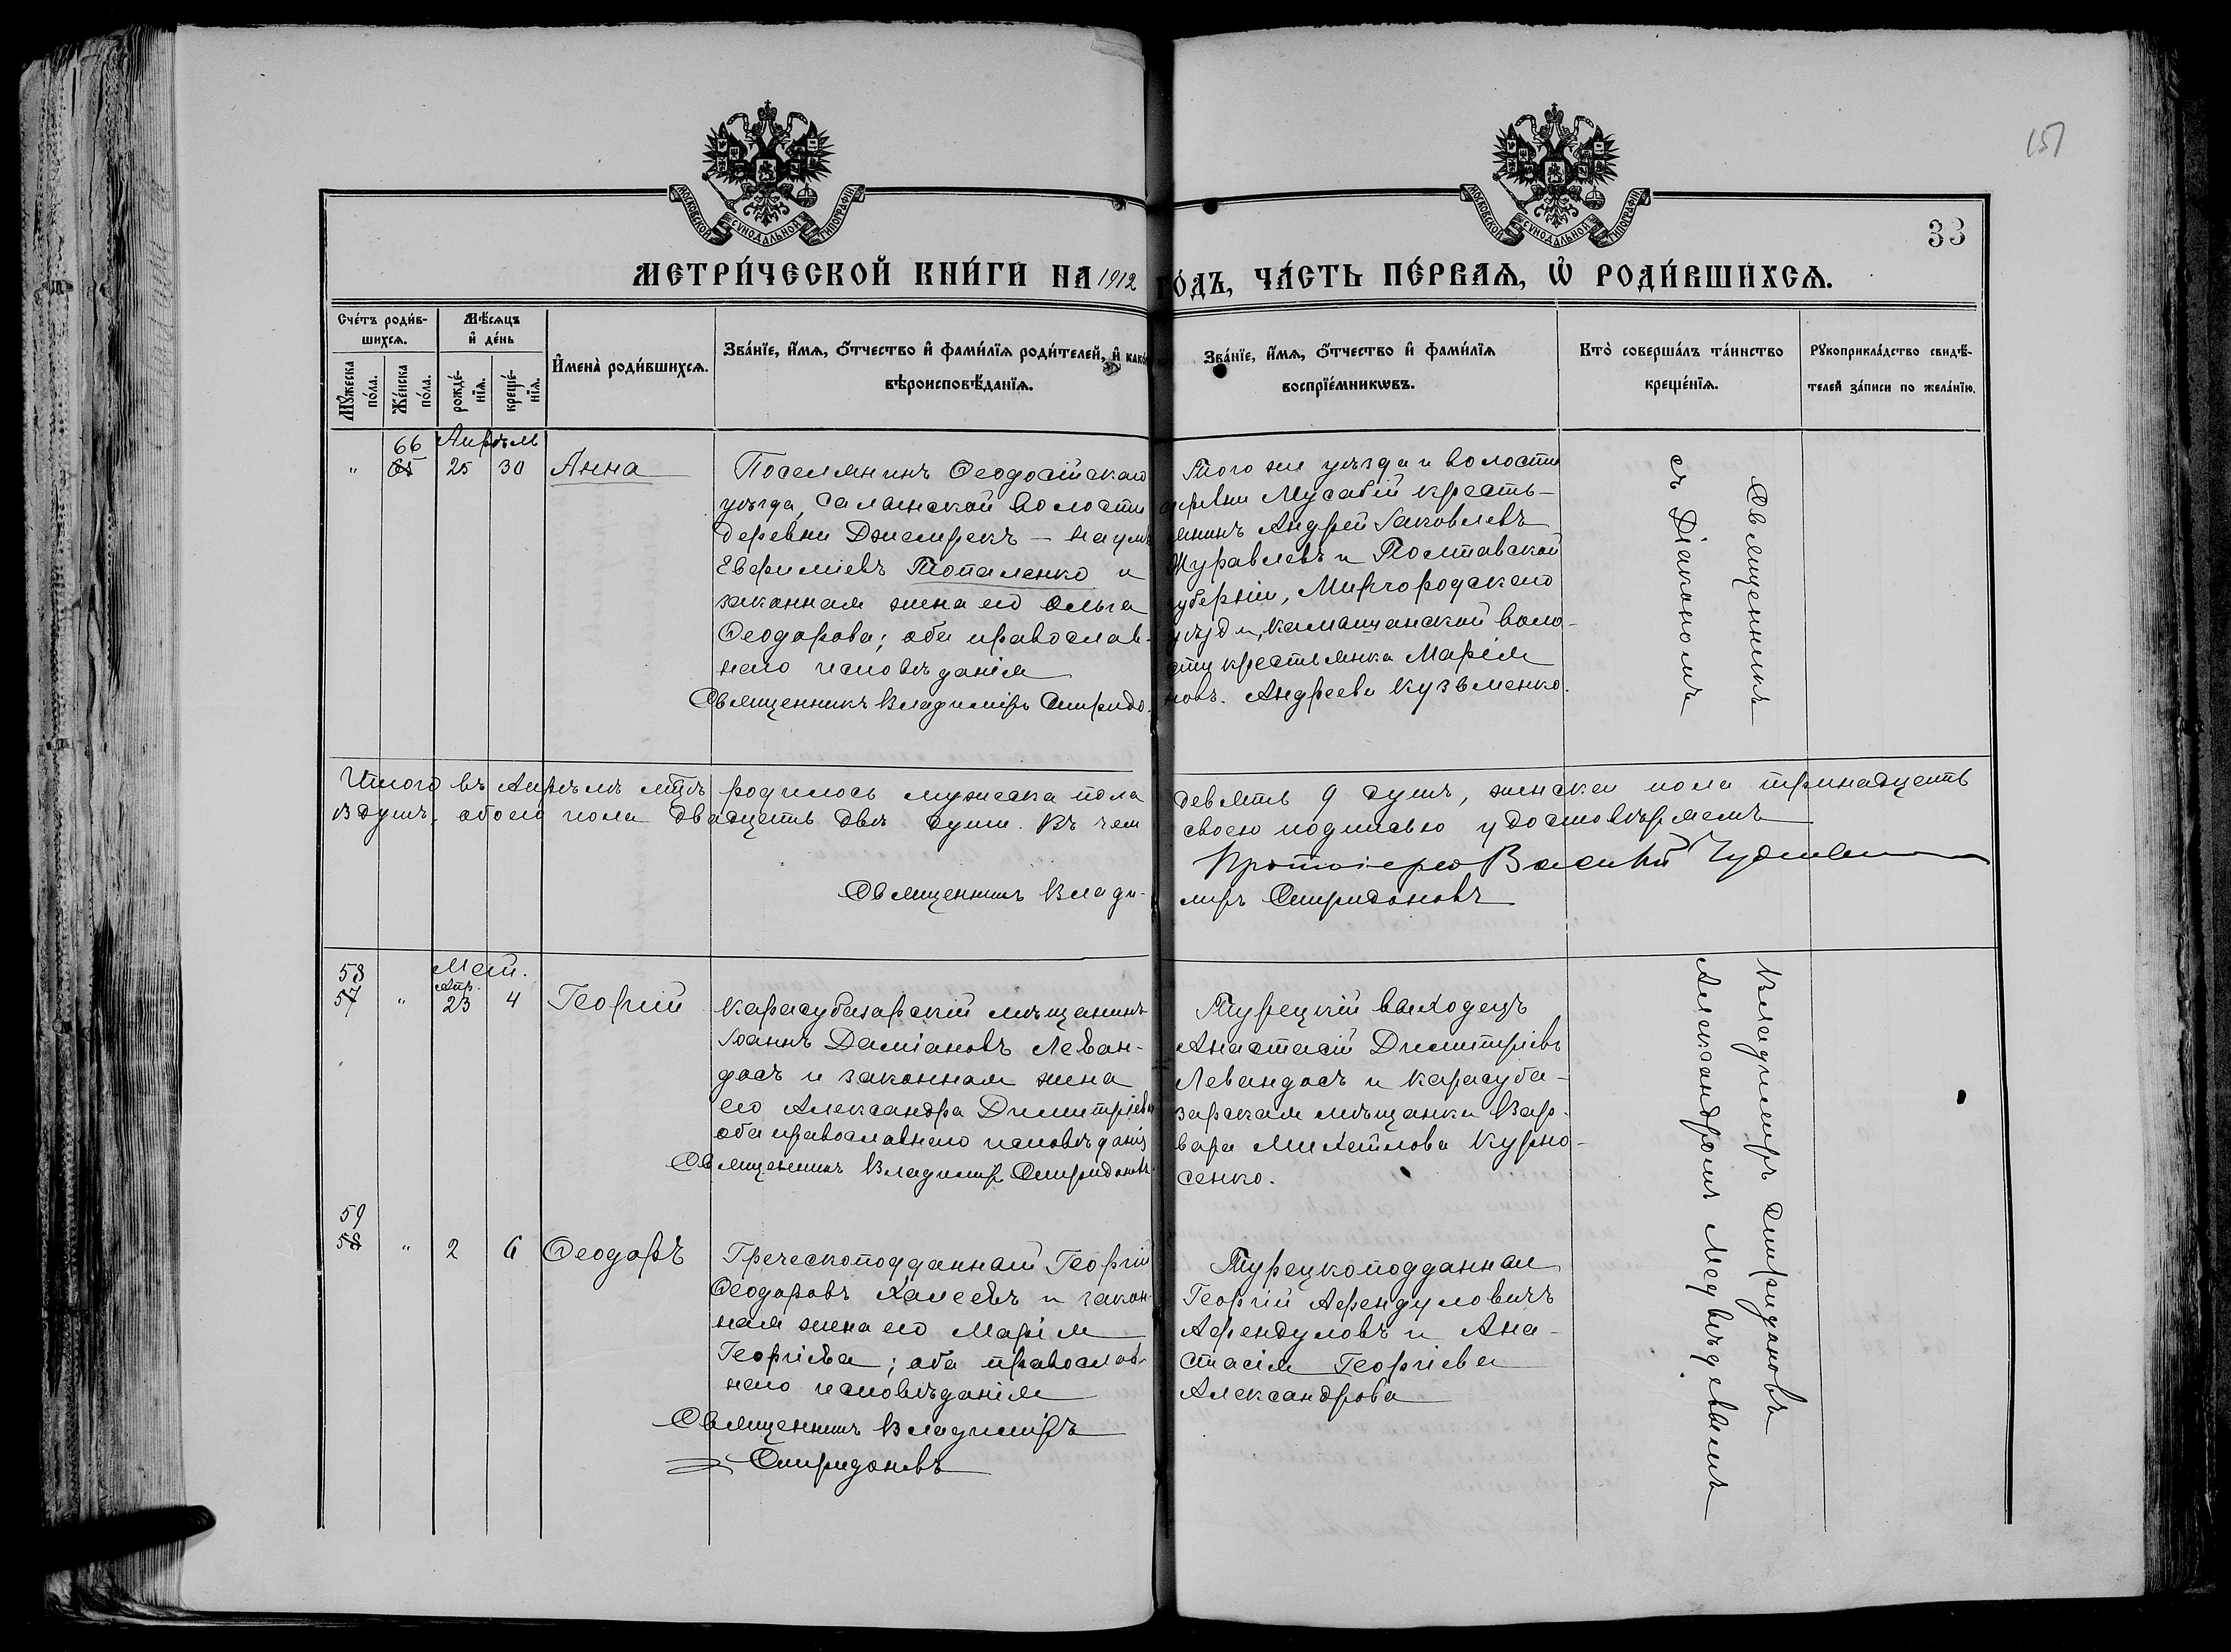 151
МОСКОВСКОЙ СѴНОДАЛЬНОЙ ТИПОГРАФІИ
МОСКОВСКОЙ СѴНОДАЛЬНОЙ ТИПОГРАФІИ
33
МЕТРИ́ЧЕСКОЙ КНИ́ГИ НА 1912 ГО́ДЪ, ЧА́СТЬ ПЕ́РВАѦ, Ѡ҆ РОДИ́ВШИХСѦ.
Сче́тъ роди́в-
шихсѧ.
Мꙋ́жеска по́ла.
Же́нска по́ла.
Мѣ́сѧцъ
и҆ де́нь
рожде́-
нїѧ.
креще́-
нїѧ.
И҆мена̀ роди́вшихсѧ.
Зва́нїе, и҆́мѧ, ѻ҆́тчество и҆ фами́лїѧ роди́телей, и҆ како́
вѣроисповѣ́данїѧ.
Зва́нїе, и҆́мѧ, ѻ҆́тчество и҆ фами́лїѧ
воспрїе́мникѡвъ.
Кто̀ соверша́лъ та́инство
креще́нїѧ.
Рꙋкоприкла́дство свидѣ́-
телей за́писи по жела́нїю.
66 Апрѣль
" 65 25 30 Анна
Поселянинъ Ѳеодосійскаго
уѣзда, Салынской волости
деревни Джемрекъ – Наумъ
Евфиміевъ Топаленко и
законная жена его Ольга
Ѳеодорова; оба православ-
наго исповѣданія
Священникъ Владиміръ Спиридо-
новъ.
Того же уѣзда и волости
деревни Мусабій кресть-
янинъ Андрей Іаковлевъ
Журавлевъ и Полтавской
губерніи, Миргородскаго
уѣзда, Камышанской воло-
сти крестьянка Марія
Андреева Кузьменко.
Священникъ
съ Діакономъ
Итого въ Апрѣлѣ мцѣ родилось мужеска пола девять 9 душъ, женска пола тринадцать
13 душъ, обоего пола двадцать двѣ души. Въ чем своею подписью удостовѣряемъ
Протоіерей Василій
Священникъ Влади-
миръ Спиридоновъ
58 Май.
57 " Апр. 23 4 Георгій
Карасубазарскій мѣщанинъ
Іоаннъ Даміановъ Леван-
досъ и законная жена
его Александра Димитріева
оба православнаго исповѣданія
Священникъ Владимиръ Спиридоновъ
Турецкій выходецъ
Анастасій Димитріевъ
Левандосъ и Карасуба-
зарская мѣщанка Вар-
вара Михайлова Курно-
сенко.
59
58 " 2 6 Ѳеодоръ
Греческоподданный Георгій
Ѳеодоровъ Халеевъ и закон-
ная жена его Марія
Георгіева; оба православ-
наго исповѣданія
Священникъ Владиміръ
Спиридоновъ
Турецкоподданный
Георгій Афендуловичъ
Афендуловъ и Ана-
стасія Георгіева
Александрова
Владимиръ Спиридоновъ
Александромъ Медвѣдевымъ